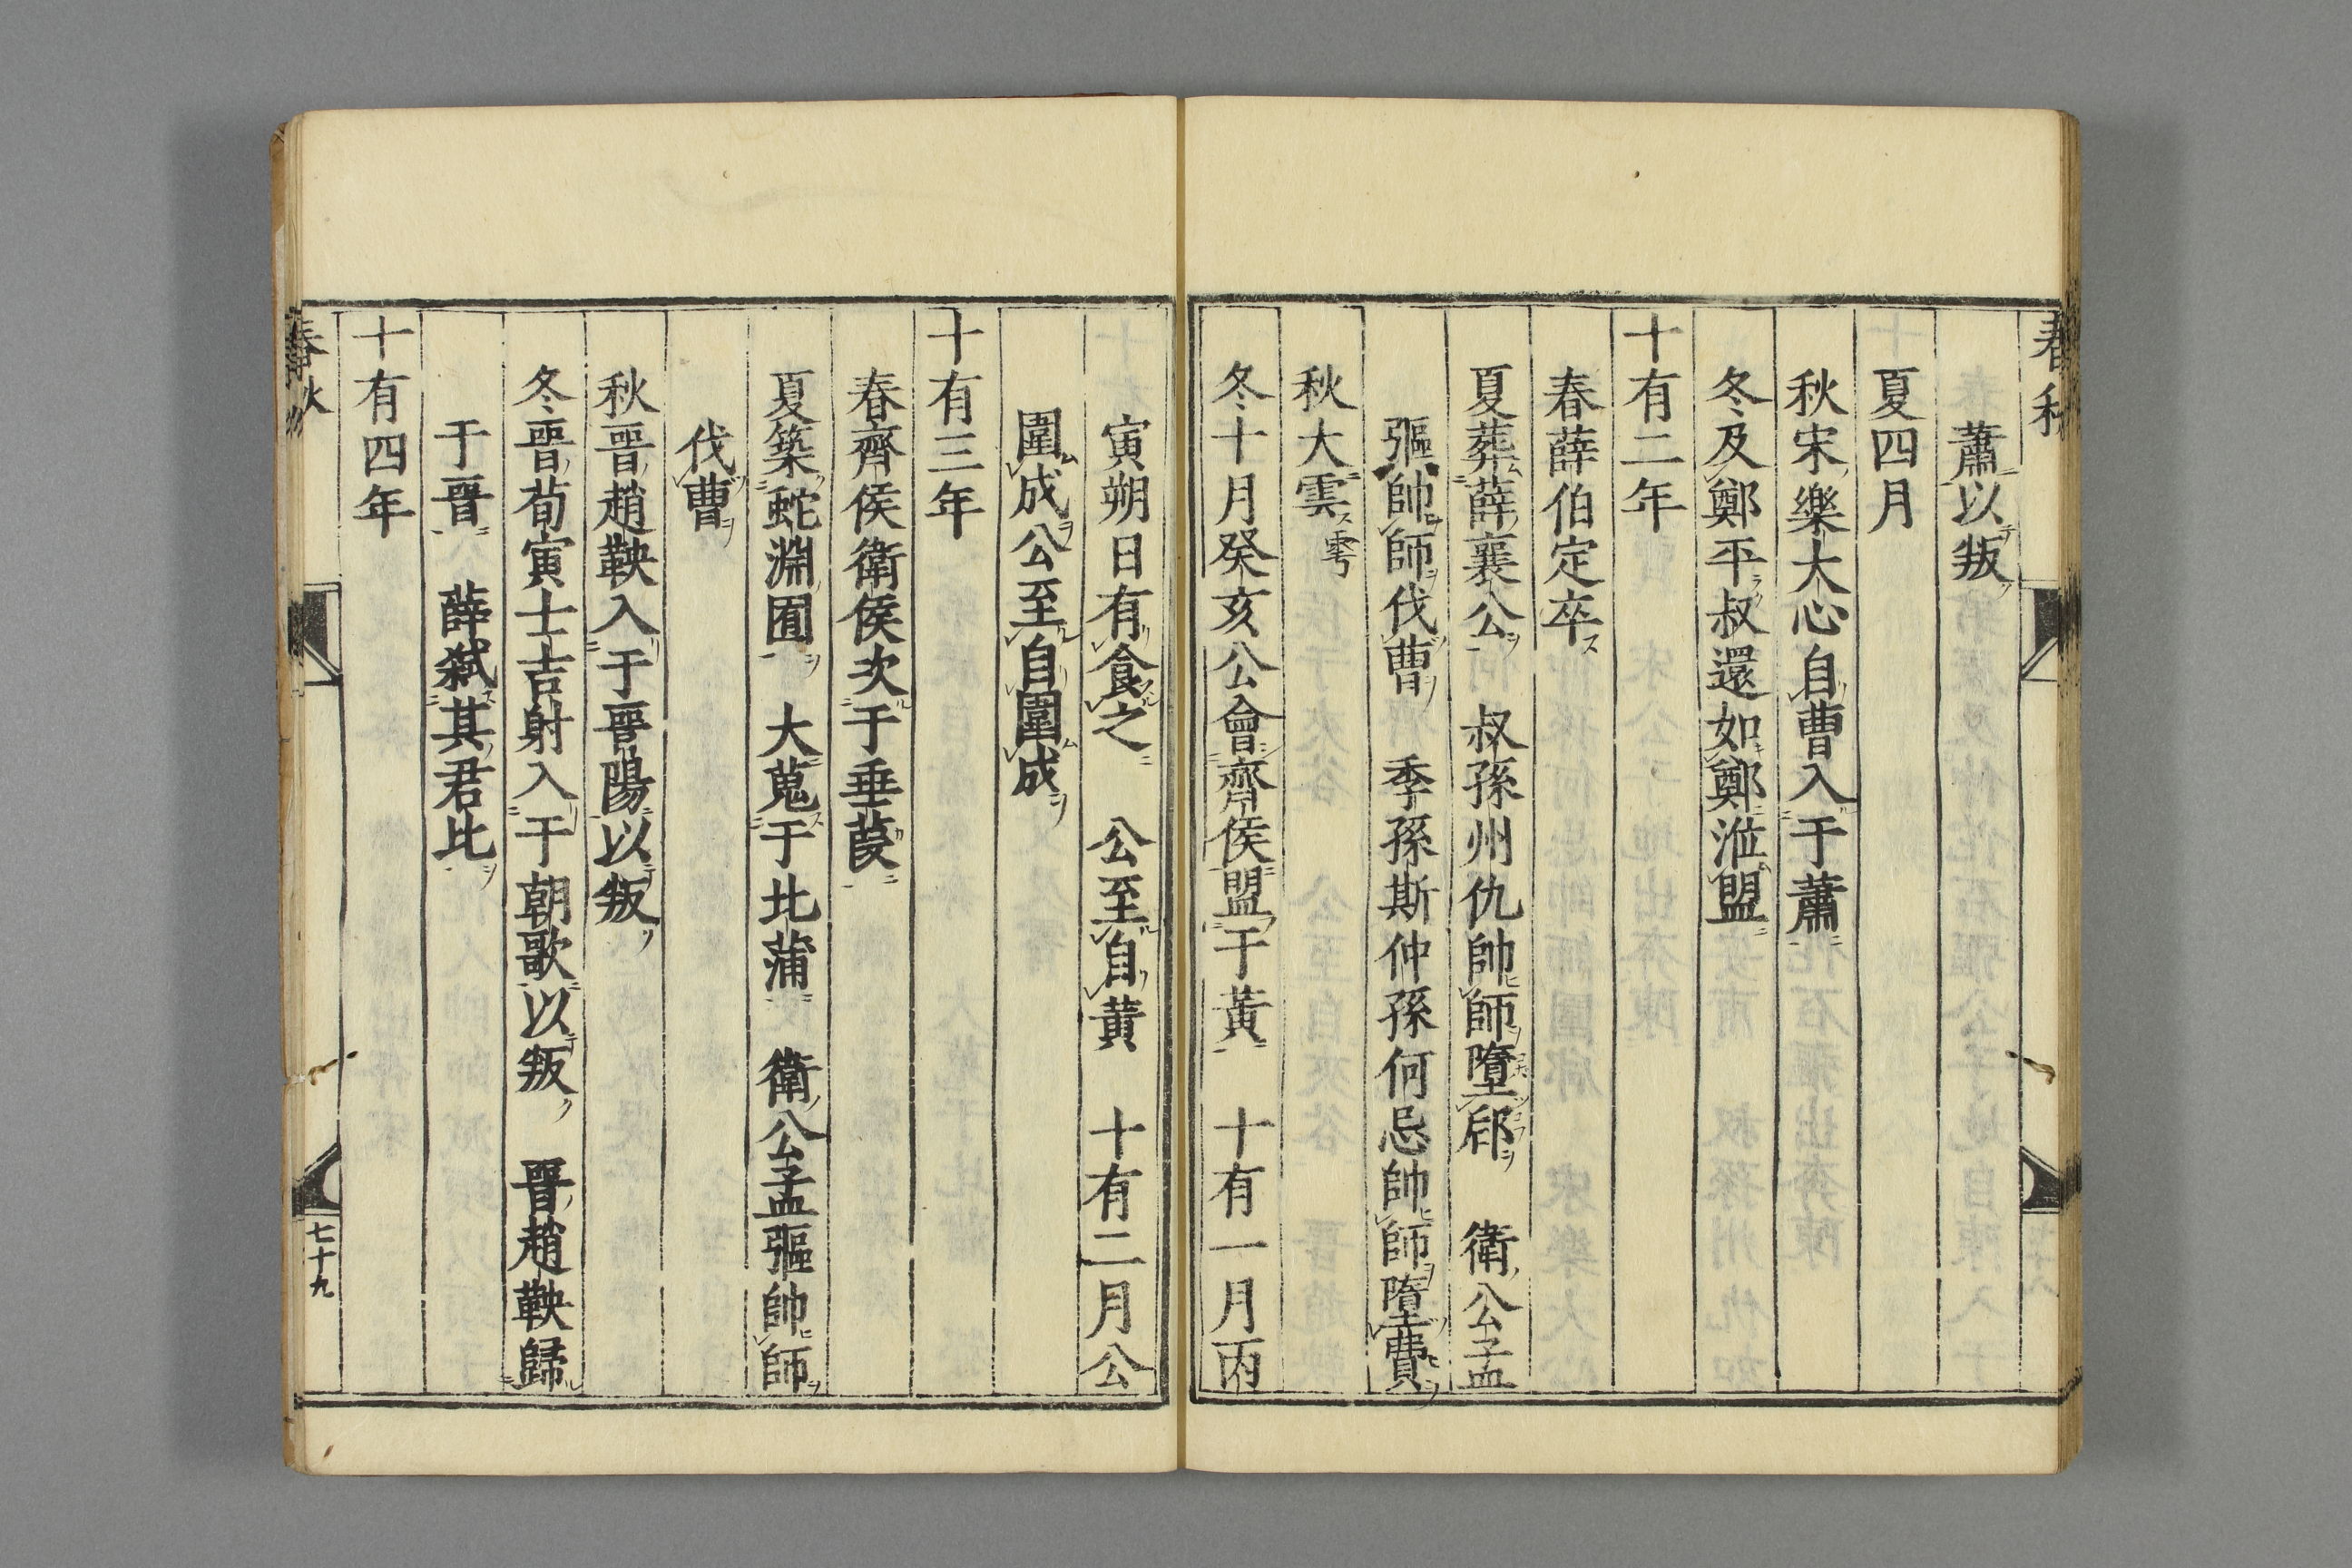 春秋
蕭以叛
夏四月
秋宋樂大心自曹入于蕭
冬及鄭平叔還如鄭涖盟
十有二年
春薛伯定卒
夏葬薛襄公　叔孫州仇帥師墮郈　衛公孟
彄帥師伐曹　季孫斯仲孫何忌帥師墮費
秋大雲雩
冬十月癸亥公會齊侯盟于黃　十有一月丙
寅朔日有食之　公至自黃　十有二月公
圍成公至自圍成
十有三年
春齊侯衛侯次于垂葭
夏築蛇淵囿　大蒐于比蒲　衛公孟彄帥師
伐曹
秋晉趙鞅入于晉陽以叛
冬晉荀寅士吉射入于朝歌以叛　晉趙鞅歸
于晉　薛弑其君比
十有四年
春秋
七十九